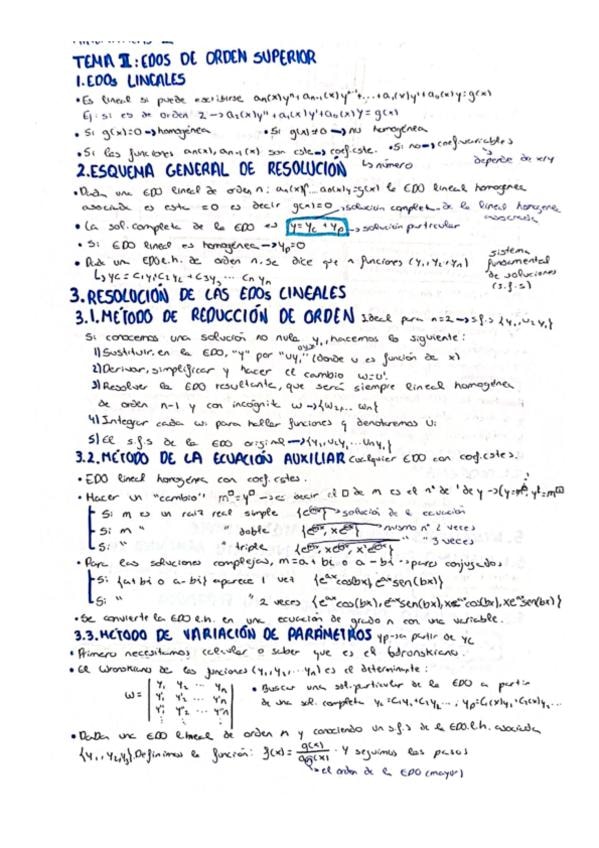 TEMA II: EDOS DE ORDEN SUPERIOR
1. EDOs LINEALES
• Es lineal si puede escribirse an(x)yⁿ + an-1(x)yⁿ⁻¹+...+a1(x)y'+a0(x)y = g(x)
Ej: si es de orden 2 → a2(x)y'' + a1(x)y' + a0(x)y = g(x)
• Si g(x)=0 → homogénea • Si g(x)≠0 → no homogénea
• Si las funciones an(x), an-1(x) son cste → coef.cste. • Si no → coef.variables
↳ número depende de x/y
2. ESQUEMA GENERAL DE RESOLUCIÓN
• Dada una EDO lineal de orden n: an(x)yⁿ...a0(x)y=g(x) la EDO lineal homogénea
asociada es esta =0 es decir g(x)=0 solución completa de la lineal homogénea asociada
• La sol. completa de la EDO es y = yc + yp → solución particular
• Si EDO lineal es homogénea → yp=0
• Dada una EDO l.h. de orden n, se dice que n funciones (y1, y2, yn)
sistema fundamental de soluciones (s.f.s)
↳ yc = C1y1 C2y2 + C3y3 ... Cn yn
3. RESOLUCIÓN DE LAS EDOs LINEALES
3.1. MÉTODO DE REDUCCIÓN DE ORDEN Ideal para n=2 → s.f.s {y1, u2y1}
Si conocemos una solución no nula y1, hacemos lo siguiente:
1) Sustituir, en la EDO, "y" por "uy1" (donde u es función de x)
2) Derivar, simplificar y hacer el cambio w=u'
3) Resolver la EDO resultante, que será siempre lineal homogénea
de orden n-1 y con incógnita w → {w2,... wn}
4) Integrar cada wi para hallar funciones q denotaremos Ui
5) El s.f.s de la EDO original → {y1, u2y1,... uny1}
3.2. MÉTODO DE LA ECUACIÓN AUXILIAR Cualquier EDO con coef.cstes.
• EDO lineal homogénea con coef.cstes.
• Hacer un "cambio" → es decir el de m es el nº de ' de y
Si m es un raíz real simple solución de la ecuación
Si m " " doble mismo nº 2 veces
Si " " triple " " 3 veces
• Para las soluciones complejas, m=a+bi o a-bi → pares conjugados
Si {a+bi o a-bi} aparece 1 vez {eᵃˣcos(bx), eᵃˣsen(bx)}
Si " " 2 veces {eᵃˣcos(bx), eᵃˣsen(bx), xeᵃˣcos(bx), xeᵃˣsen(bx)}
• Se convierte la EDO l.h. en una ecuación de grado n con una variable.
3.3. MÉTODO DE VARIACIÓN DE PARÁMETROS yp → a partir de yc
• Primero necesitamos calcular o saber que es el Wronskiano.
• El Wronskiano de las funciones (y1, y2, ... yn) es el determinante:
w = | y1 y2 ... yn | • Buscar una sol. particular de la EDO a partir
| y'1 y'2 ... y'n | de una sol. completa yc=C1y1+C2y2...; yp=C1(x)y1+C2(x)y2...
| y''1 y''2 ... y''n |
• Dada una EDO lineal de orden n y conociendo un s.f.s de la EDO l.h. asociada
{y1, y2, y3}. Definimos la función: f(x) = g(x)/an(x) . Y seguimos los pasos
el orden de la EDO (mayor)